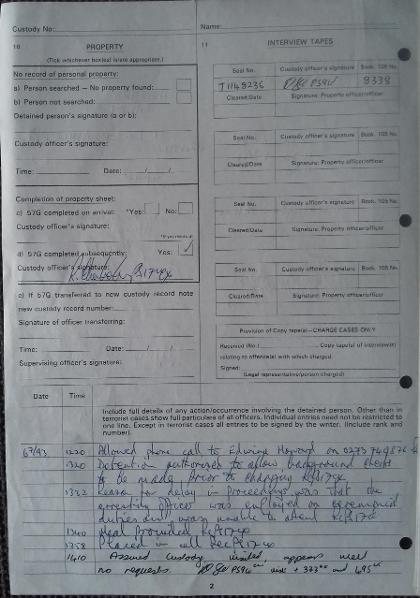 Custody No:
Name:
10 PROPERTY
(Tick whichever box(es) is/are appropriate.)
No record of personal property:
a) Person searched – No property found:
b) Person not searched:
Detained person's signature (a or b):
Custody officer's signature:
Time: Date: / /
Completion of property sheet:
c) 57G completed on arrival: *Yes: No:
Custody officer's signature:
d) 57G completed subsequently: Yes: ✓
Custody officer's signature:
e) If 57G transferred to new custody record note
new custody record number:
Signature of officer transferring:
Time: Date: / /
Supervising officer's signature:
11 INTERVIEW TAPES
Seal No. Custody officer's signature Book 105 No.
T1148236 PS94 8338
Cleared/Date Signature: Property officer/officer
Seal No. Custody officer's signature Book 105 No.
Cleared/Date Signature: Property officer/officer
Seal No. Custody officer's signature Book 105 No.
Cleared/Date Signature: Property officer/officer
Seal No. Custody officer's signature Book 105 No.
Cleared/Date Signature: Property officer/officer
Provision of Copy tape(s) – CHARGE CASES ONLY
Received (No.) Copy tape(s) of interview(s)
relating to offence(s) with which charged.
Signed:
(Legal representative/person charged)
Date Time
Include full details of any action/occurrence involving the detained person. Other than in
terrorist cases show full particulars of all officers. Individual entries need not be restricted to
one line. Except in terrorist cases all entries to be signed by the writer. (Include rank and
number).
1220 Allowed phone call to Edward Hayward on 0273
1320 Detention authorised to allow background checks
to be made prior to charging
1322 Reason for delay in proceedings was that the
arresting officer was employed on ceremonial
duties and was unable to attend
1340 Meal Provided
1358 Placed in cell
1410 Assumed custody visited, appears well
no requests PS94
2